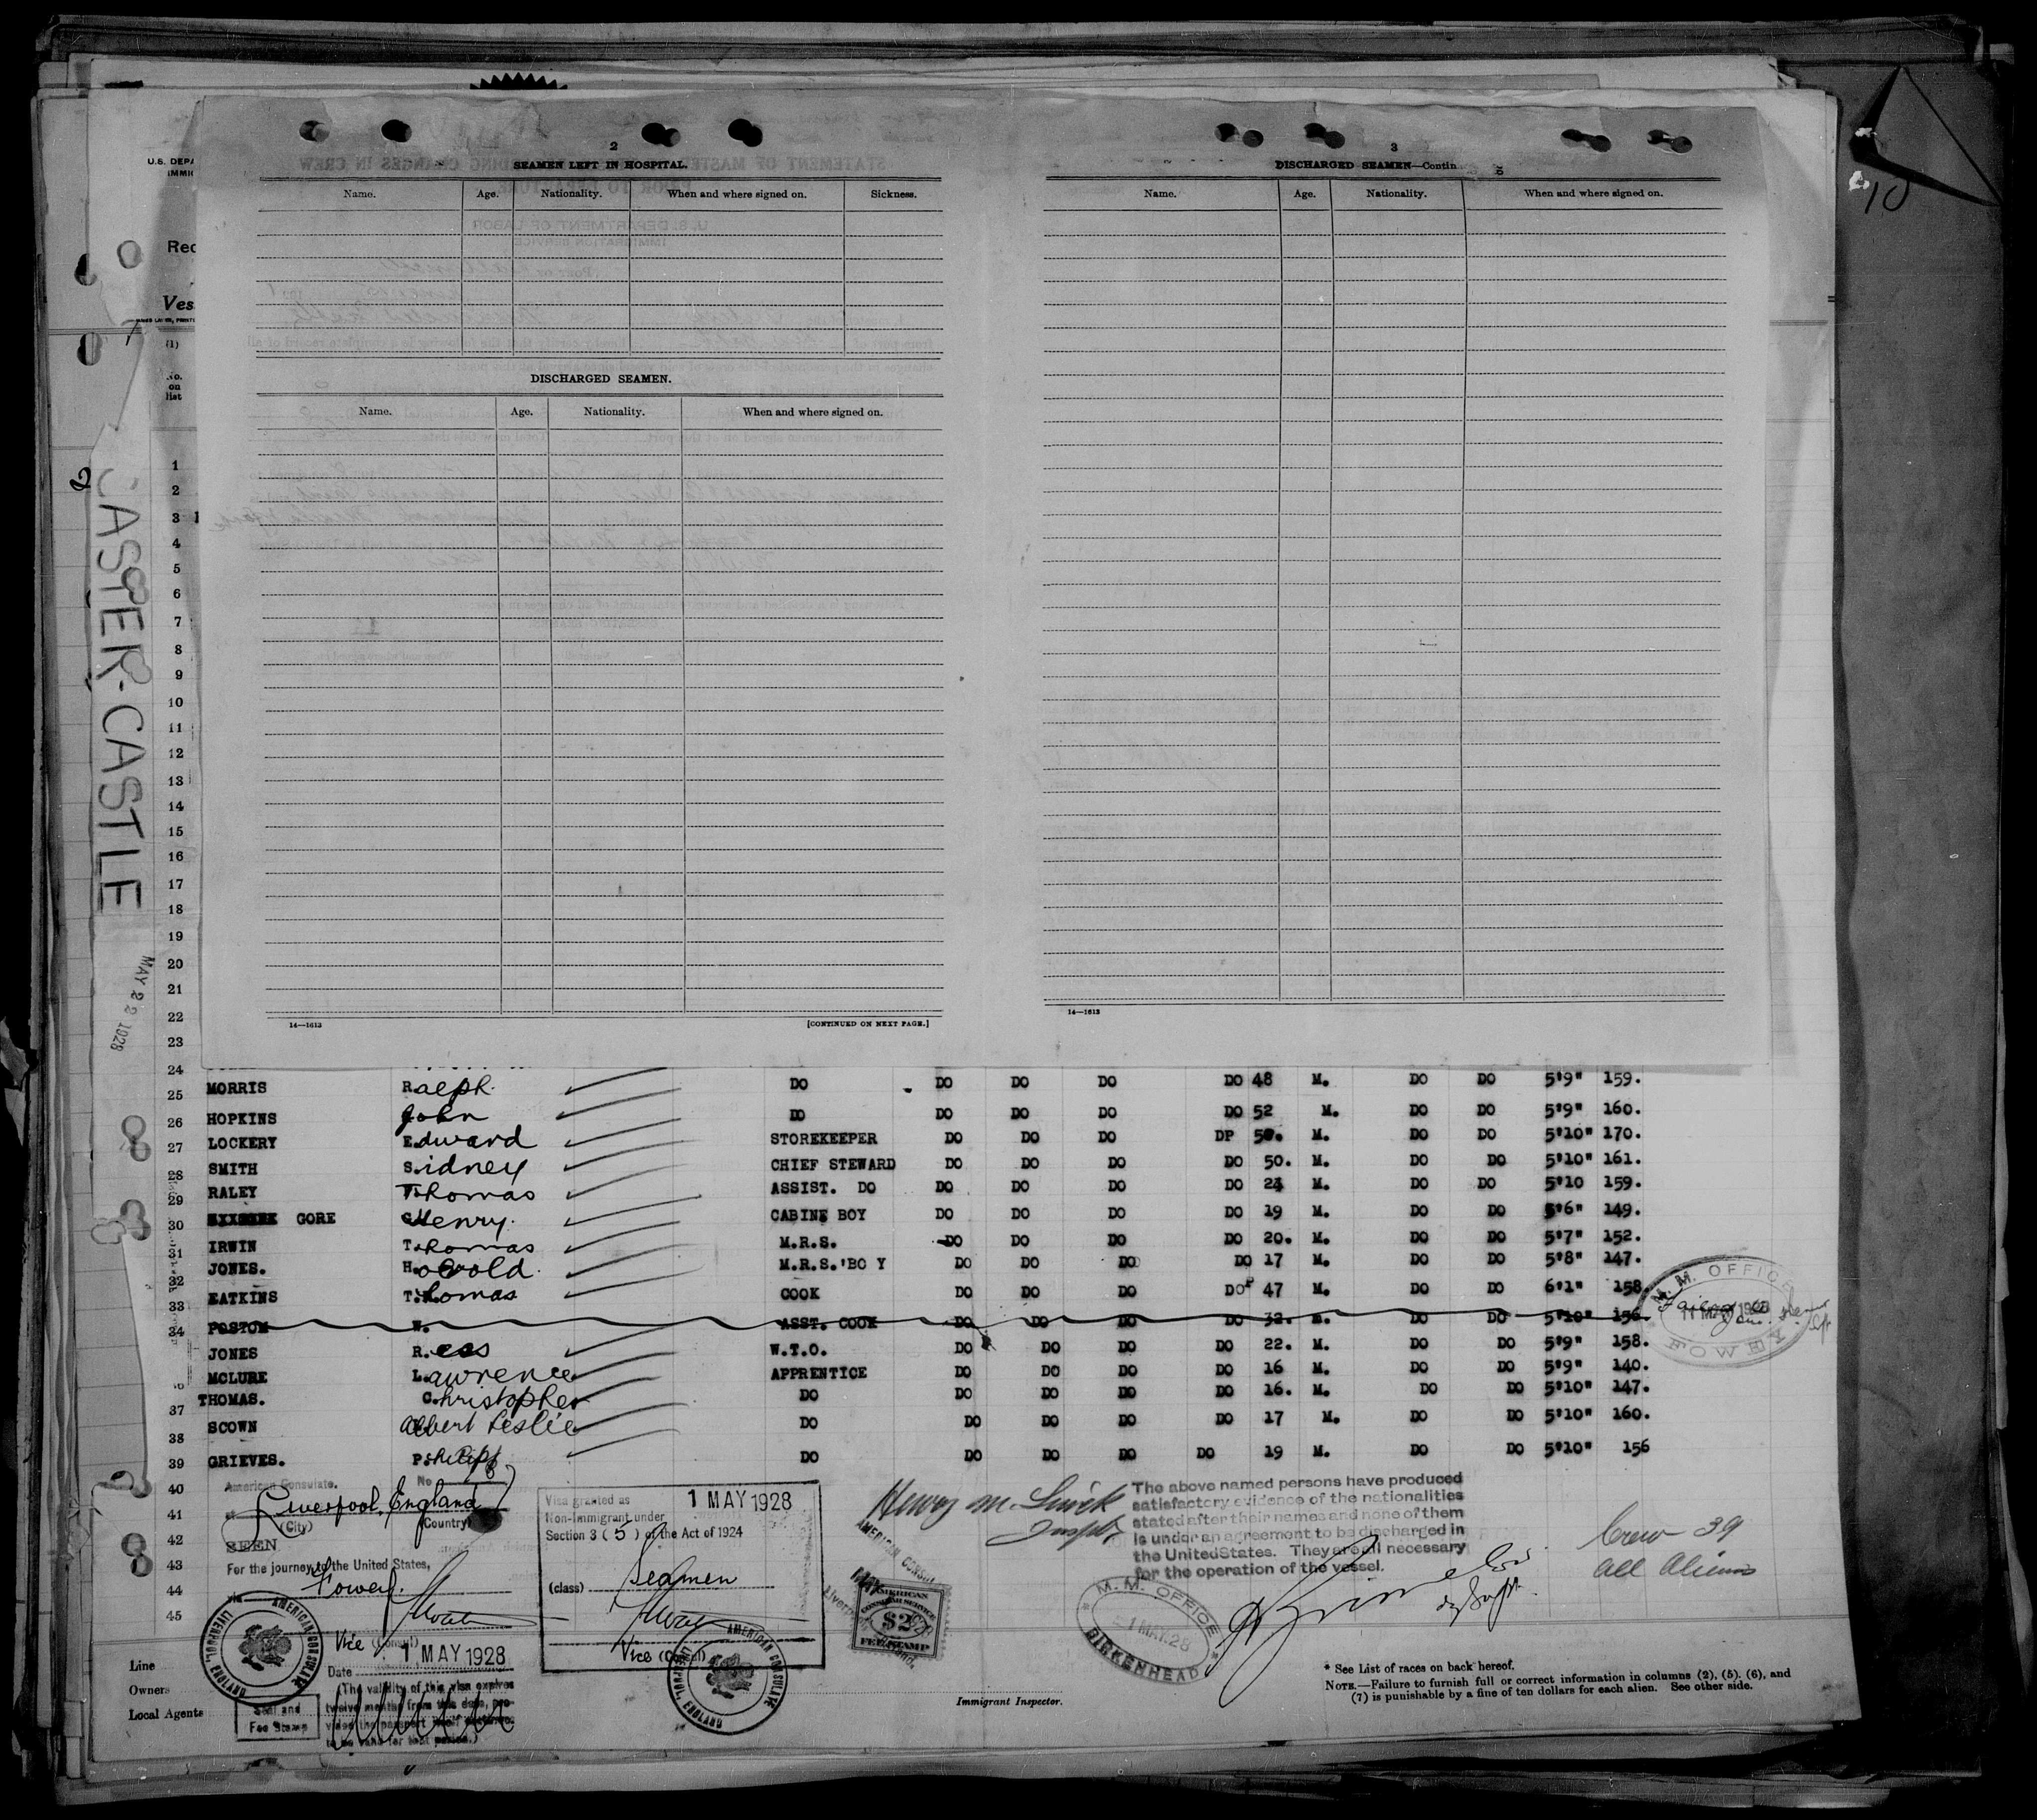 U.S. DEPA
IMMIG
Rec
Ves
(1)
No.
on
list
CASTER-CASTLE
MAY 22 1928
10
2
SEAMEN LEFT IN HOSPITAL.
Name. Age. Nationality. When and where signed on. Sickness.
DISCHARGED SEAMEN.
Name. Age. Nationality. When and where signed on.
14—1613 [CONTINUED ON NEXT PAGE.]
3
DISCHARGED SEAMEN—Contin
Name. Age. Nationality. When and where signed on.
14—1613
1
2
3
4
5
6
7
8
9
10
11
12
13
14
15
16
17
18
19
20
21
22
23
24
25 MORRIS Ralph DO DO DO DO DO 48 M. DO DO 5'9" 159.
26 HOPKINS John DO DO DO DO DO 52 M. DO DO 5'9" 160.
27 LOCKERY Edward STOREKEEPER DO DO DO DP 50. M. DO DO 5'10" 170.
28 SMITH Sidney CHIEF STEWARD DO DO DO DO 50. M. DO DO 5'10" 161.
29 RALEY Thomas ASSIST. DO DO DO DO DO 24 M. DO DO 5'10 159.
30 GORE Henry. CABINE BOY DO DO DO DO 19 M. DO DO 5'6" 149.
31 IRWIN Thomas M.R.S. DO DO DO DO 20. M. DO DO 5'7" 152.
32 JONES. Harold. M.R.S.'BO Y DO DO DO DO 17 M. DO DO 5'8" 147.
33 EATKINS Thomas COOK DO DO DO DO 47 M. DO DO 6'1" 158.
34 POSTON W. ASST. COOK DO DO DO DO 32. M. DO DO 5'10" 156
JONES R.ees W.T.O. DO DO DO DO 22. M. DO DO 5'9" 158.
MCLURE Lawrence APPRENTICE DO DO DO DO 16 M. DO DO 5'9" 140.
37 THOMAS. Christopher DO DO DO DO DO 16. M. DO DO 5'10" 147.
38 SCOWN Albert Leslie DO DO DO DO DO 17 M. DO DO 5'10" 160.
39 GRIEVES. Philip DO DO DO DO DO 19 M. DO DO 5'10" 156
40
41
42
43
44
45
M.M. OFFICE
11 MAY 1928
FOWEY
American Consulate. No
at Liverpool, England
(City) (Country)
SEEN
For the journey to the United States,
via Fowey.
Vice (Consul)
Date 1 MAY 1928
(The validity of this visa expires
twelve months from this date, pro-
vided the passport itself continues
to be valid for that period.)
AMERICAN CONSULATE
LIVERPOOL, ENGLAND
Seal and
Fee Stamp
Visa granted as 1 MAY 1928
Non-Immigrant under
Section 3 (5) of the Act of 1924
(class) Seamen
Vice (Consul)
AMERICAN CONSULATE
LIVERPOOL, ENGLAND
AMERICAN CONSUL
AMERICAN
CONSULAR SERVICE
$2
FEE STAMP
The above named persons have produced
satisfactory evidence of the nationalities
stated after their names and none of them
is under an agreement to be discharged in
the United States. They are all necessary
for the operation of the vessel.
M.M. OFFICE
1 MAY.28
BIRKENHEAD
Crew 39
all Aliens
Line
Owners
Local Agents
Immigrant Inspector.
* See List of races on back hereof.
NOTE.—Failure to furnish full or correct information in columns (2), (5), (6), and
(7) is punishable by a fine of ten dollars for each alien. See other side.